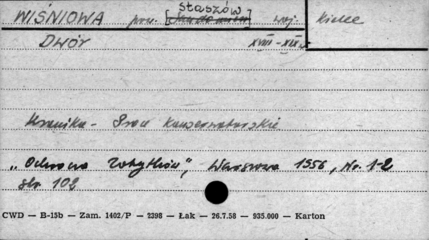 WIŚNIOWA pow. [Staszów] woj. Kielce
DWÓR XVIII-XIX w.
Kronika - Prace Konserwatorskie
„Ochrona Zabytków", Warszawa 1956, Nr. 1-2
str. 102
CWD — B-15b — Zam. 1402/P — 2398 — Łak — 26.7.58 — 935.000 — Karton